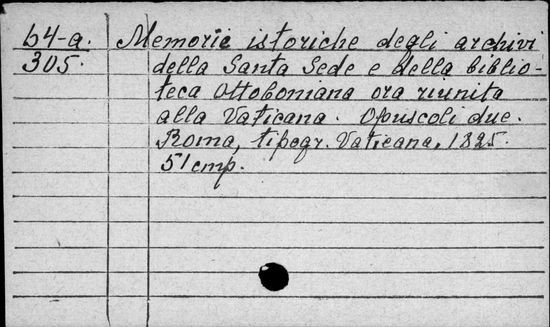 64-a. Memorie istoriche degli archivi
305. della Santa Sede e della biblio-
teca Ottoboniana ora riunita
alla Vaticana. Opuscoli due.
Roma, tipogr. Vaticana, 1825.
51 cmp.